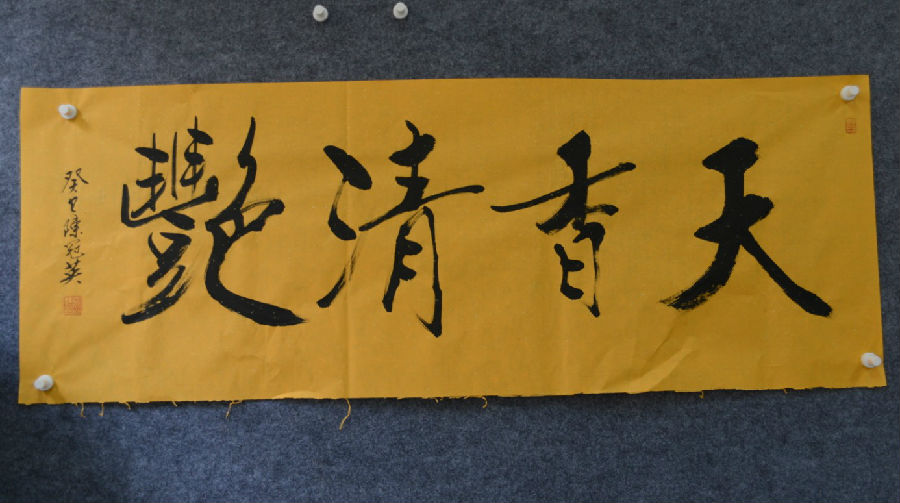 天香清艷
癸巳陳冠英